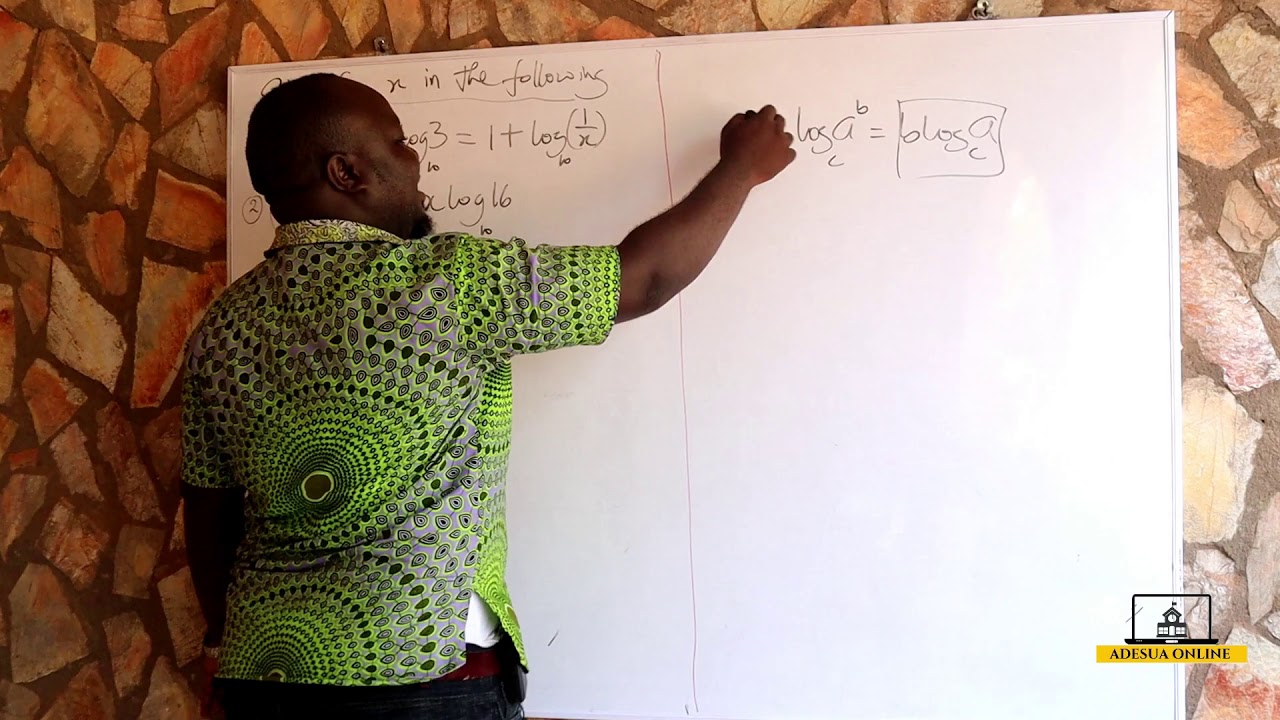 x in the following
log₁₀3 = 1 + log₁₀(1/x)
② x log₁₀16
log_c a^b = b log_c a
ADESUA ONLINE